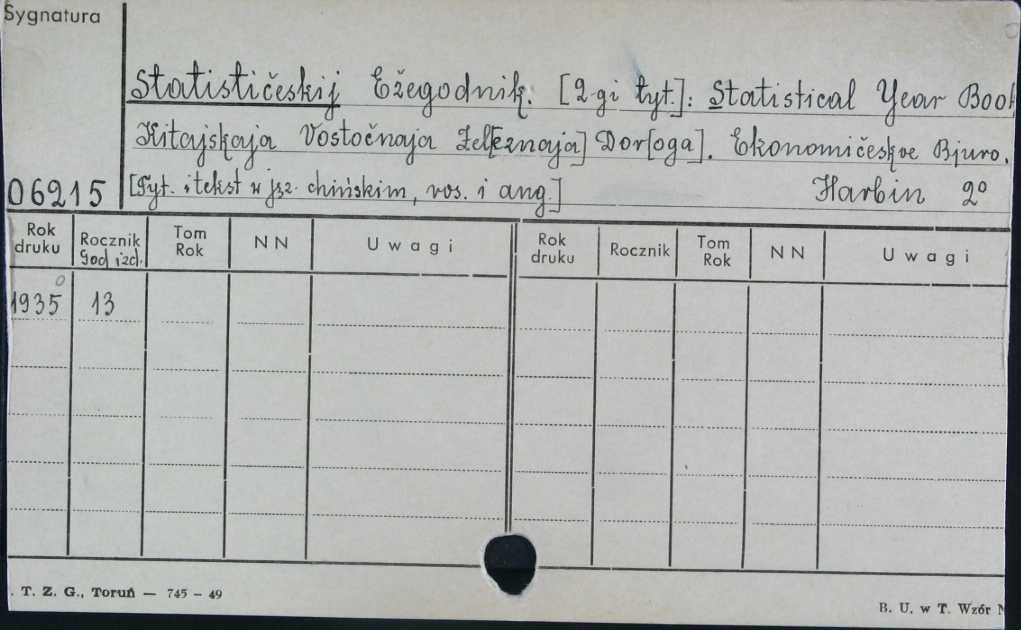 Sygnatura
Statističeskij Ežegodnik. [2-gi tyt.]: Statistical Year Book
Kitajskaja Vostočnaja Žel[eznaja] Dor[oga]. Ekonomičeskoe Bjuro.
06215 [Tyt. i tekst w jęz. chińskim, ros. i ang.] Harbin 2°
Rok druku Rocznik God izd. Tom Rok NN Uwagi Rok druku Rocznik Tom Rok NN Uwagi
1935 13
. T. Z. G., Toruń — 745 - 49
B. U. w T. Wzór